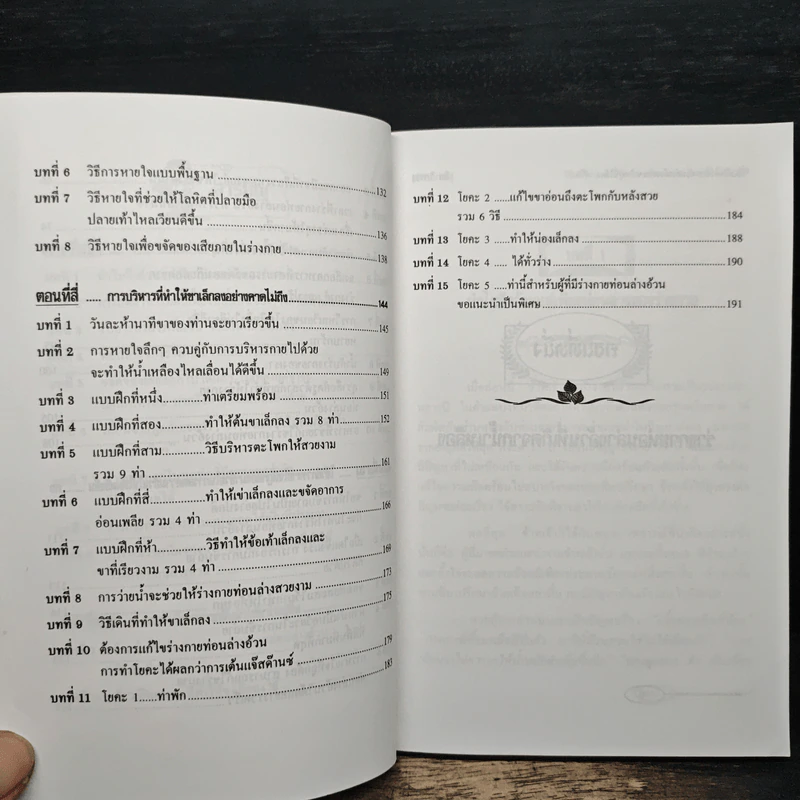 บทที่ 6 วิธีการหายใจแบบพื้นฐาน 132
บทที่ 7 วิธีหายใจที่ช่วยให้โลหิตที่ปลายมือ
ปลายเท้าไหลเวียนดีขึ้น 136
บทที่ 8 วิธีหายใจเพื่อขจัดของเสียภายในร่างกาย 138
ตอนที่สี่ ..... การบริหารที่ทำให้ขาเล็กลงอย่างคาดไม่ถึง 144
บทที่ 1 วันละห้านาทีขาของท่านจะยาวเรียวขึ้น 145
บทที่ 2 การหายใจลึกๆ ควบคู่กับการบริหารกายไปด้วย
จะทำให้น้ำเหลืองไหลเลื่อนได้ดีขึ้น 149
บทที่ 3 แบบฝึกที่หนึ่ง............ท่าเตรียมพร้อม 151
บทที่ 4 แบบฝึกที่สอง............ทำให้ต้นขาเล็กลง รวม 8 ท่า 152
บทที่ 5 แบบฝึกที่สาม............วิธีบริหารตะโพกให้สวยงาม
รวม 9 ท่า 161
บทที่ 6 แบบฝึกที่สี่............ทำให้เข่าเล็กลงและขจัดอาการ
อ่อนเพลีย รวม 4 ท่า 166
บทที่ 7 แบบฝึกที่ห้า............วิธีทำให้ข้อเท้าเล็กลงและ
ขาที่เรียวงาม รวม 4 ท่า 169
บทที่ 8 การว่ายน้ำจะช่วยให้ร่างกายท่อนล่างสวยงาม 173
บทที่ 9 วิธีเดินที่ทำให้ขาเล็กลง 175
บทที่ 10 ต้องการแก้ไขร่างกายท่อนล่างอ้วน
การทำโยคะได้ผลกว่าการเต้นแจ๊สด๊านซ์ 179
บทที่ 11 โยคะ 1......ท่าพัก 183
บทที่ 12 โยคะ 2 .....แก้ไขขาอ่อนถึงตะโพกกับหลังสวย
รวม 6 วิธี 184
บทที่ 13 โยคะ 3 .....ทำให้น่องเล็กลง 188
บทที่ 14 โยคะ 4 ..... ได้ทั่วร่าง 190
บทที่ 15 โยคะ 5 .....ท่านี้สำหรับผู้ที่มีร่างกายท่อนล่างอ้วน
ขอแนะนำเป็นพิเศษ 191